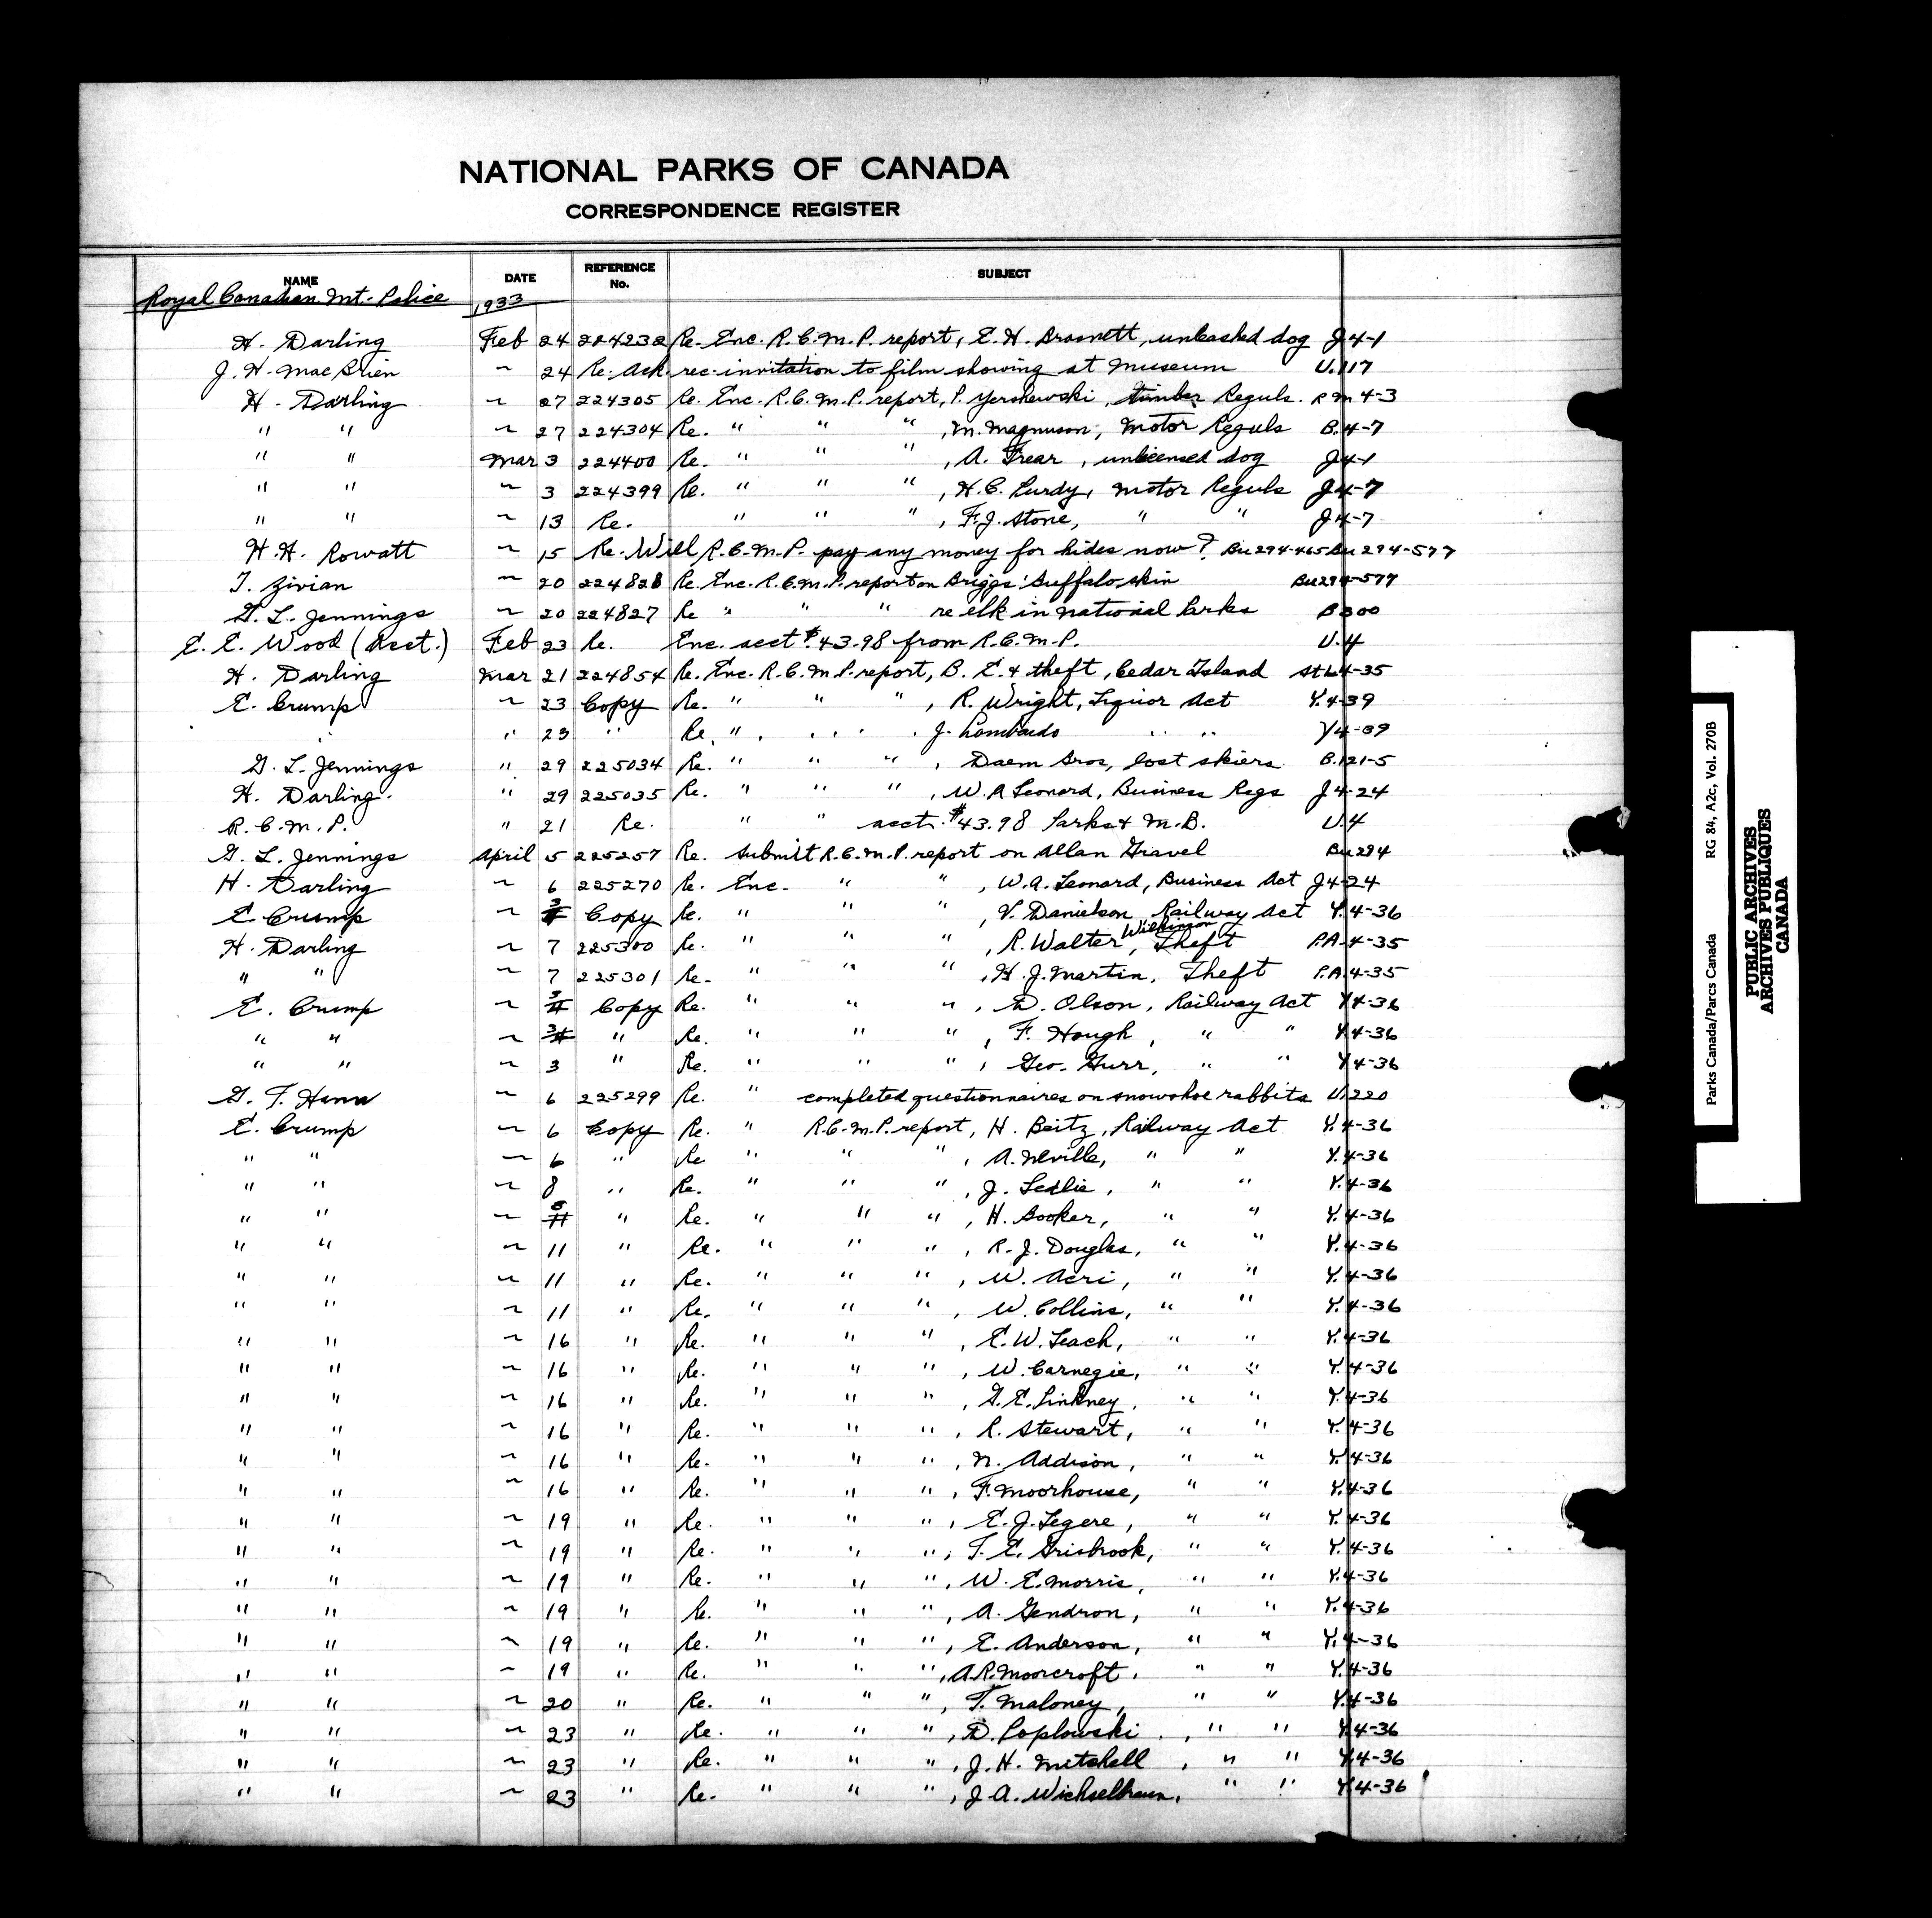 NATIONAL PARKS OF CANADA
CORRESPONDENCE REGISTER
NAME DATE REFERENCE No. SUBJECT
Royal Canadian Mt. Police 1933
H. Darling Feb 24 224232 Re. Enc. R.C.M.P. report, E. H. Brasnett, unleashed dog J4-1
J. H. MacBrien ~ 24 Re. Ack. rec. invitation to film showing at Museum U.117
H. Darling ~ 27 224305 Re. Enc. R.C.M.P. report, P. Yershewski, timber Reguls. RM 4-3
" " ~ 27 224304 Re. " " ", M. Magnuson, Motor Reguls B.4-7
" " Mar 3 224400 Re. " " ", A. Frear, unlicensed dog J4-1
" " ~ 3 224399 Re. " " ", H.C. Purdy, Motor Reguls J4-7
" " ~ 13 Re. " " ", F.J. Stone, " " J4-7
H.H. Rowatt ~ 15 Re. Will R.C.M.P. pay any money for hides now? Bu294-465 Bu294-577
T. Zivian ~ 20 224828 Re. Enc. R.C.M.P. report on Briggs' Buffalo skin Bu294-577
G. L. Jennings ~ 20 224827 Re " " " re elk in National Parks B300
E. E. Wood (Acct.) Feb 23 Re. Enc. acct $43.98 from R.C.M.P. U.4
H. Darling Mar 21 224854 Re. Enc. R.C.M.P. report, B. E. & theft, Cedar Island StL4-35
E. Crump ~ 23 Copy Re. " " ", R. Wright, Liquor Act Y.4-39
" 23 " Re. " . . . . J. Lombardo " " Y4-39
G. L. Jennings " 29 225034 Re. " " ", Daem Bros, lost skiers B.121-5
H. Darling. " 29 225035 Re. " " ", W. A Leonard, Business Regs J4-24
R.C.M.P. " 21 Re. " " acct. $43.98 Parks & M.B. U.4
G. L. Jennings April 5 225257 Re. Submit R.C.M.P. report on Allan Gravel Bu294
H. Darling ~ 6 225270 Re. Enc. " ", W.A. Leonard, Business Act J4-24
E. Crump ~ 3 Copy Re. " " ", V. Danielson, Railway Act Y.4-36
H. Darling ~ 7 225300 Re. " " ", R. Walter Wilkinson, Theft P.A.4-35
" " ~ 7 225301 Re. " " ", H. J. Martin, Theft P.A.4-35
E. Crump ~ 3 Copy Re. " " ", D. Olson, Railway Act Y4-36
" " ~ 3 " Re. " " ", F. Hough, " " Y.4-36
" " ~ 3 " Re. " " ", Geo. Gurr, " " Y4-36
G. T. Hann ~ 6 225299 Re. " completed questionnaires on snowshoe rabbits U.220
E. Crump ~ 6 Copy Re. " R.C.M.P. report, H. Beitz, Railway Act Y.4-36
" " ~ 6 " Re " " ", A. Neville, " " Y.4-36
" " ~ 8 " Re. " " ", J. Ledlie, " " Y.4-36
" " ~ 8 " Re. " " ", H. Booker, " " Y.4-36
" " ~ 11 " Re. " " ", R. J. Douglas, " " Y.4-36
" " ~ 11 " Re. " " ", W. Acri, " " Y.4-36
" " ~ 11 " Re. " " ", W. Collins, " " Y.4-36
" " ~ 16 " Re. " " ", E. W. Leach, " " Y.4-36
" " ~ 16 " Re. " " ", W. Carnegie, " " Y.4-36
" " ~ 16 " Re. " " ", G. E. Pinkney, " " Y.4-36
" " ~ 16 " Re. " " ", R. Stewart, " " Y.4-36
" " ~ 16 " Re. " " ", N. Addison, " " Y.4-36
" " ~ 16 " Re. " " ", F. Moorhouse, " " Y.4-36
" " ~ 19 " Re. " " ", E. J. Legere, " " Y.4-36
" " ~ 19 " Re. " " ", T. E. Grisbrook, " " Y.4-36
" " ~ 19 " Re. " " ", W. E. Morris, " " Y.4-36
" " ~ 19 " Re. " " ", A. Gendron, " " Y.4-36
" " ~ 19 " Re. " " ", E. Anderson, " " Y.4-36
" " ~ 19 " Re. " " ", A.R. Moorcroft, " " Y.4-36
" " ~ 20 " Re. " " ", T. Maloney, " " Y.4-36
" " ~ 23 " Re. " " ", D. Poplowski, " " Y.4-36
" " ~ 23 " Re. " " ", J. H. Mitchell, " " Y.4-36
" " ~ 23 " Re. " " ", J. A. " " Y.4-36
Parks Canada/Parcs Canada RG 84, A2c, Vol. 270B
PUBLIC ARCHIVES
ARCHIVES PUBLIQUES
CANADA